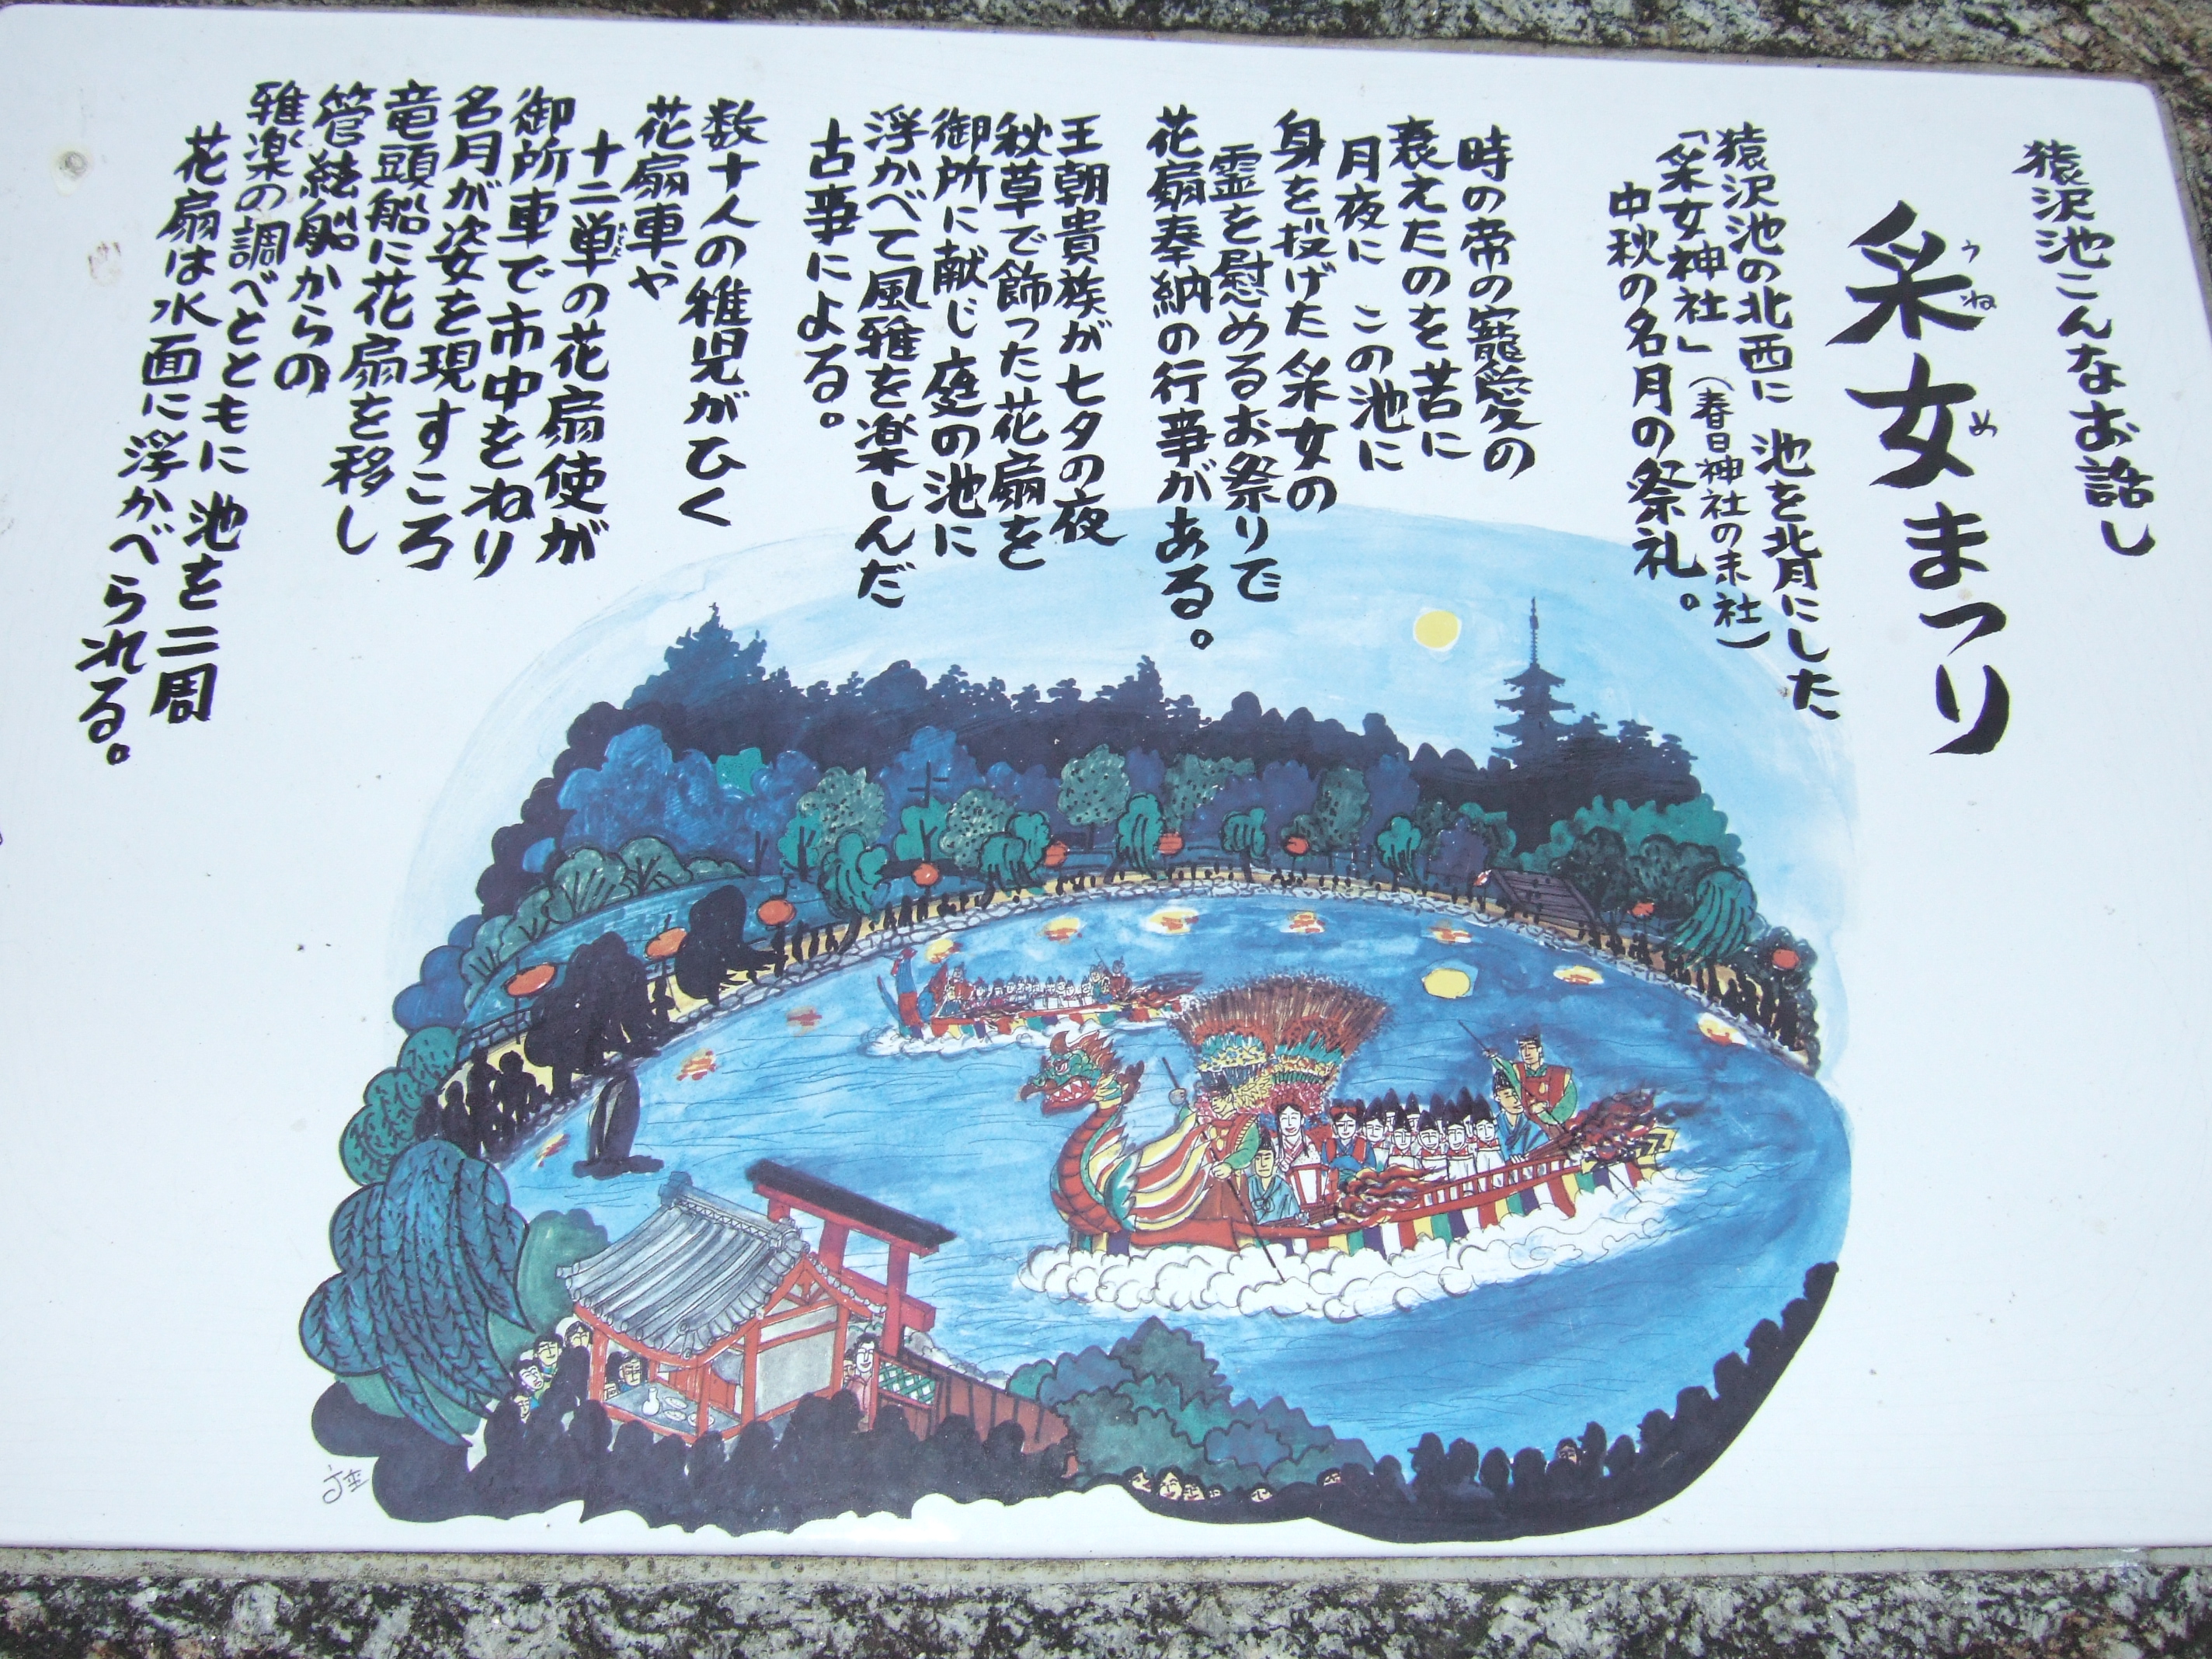 猿沢池こんなお話し
采女まつり
うねめ
猿沢池の北西に 池を北月にした
「采女神社」(春日神社の末社)
中秋の名月の祭礼。
時の帝の寵愛の
衰えたのを苦に
月夜に この池に
身を投げた采女の
霊を慰めるお祭りで
花扇奉納の行事がある。
王朝貴族が七夕の夜
秋草で飾った花扇を
御所に献じ庭の池に
浮かべて風雅を楽しんだ
古事による。
数十人の稚児がひく
花扇車や
十二単の花扇使が
御所車で市中をねり
名月が姿を現すころ
竜頭船に花扇を移し
管絃船からの
雅楽の調べとともに 池を二周
花扇は水面に浮かべられる。